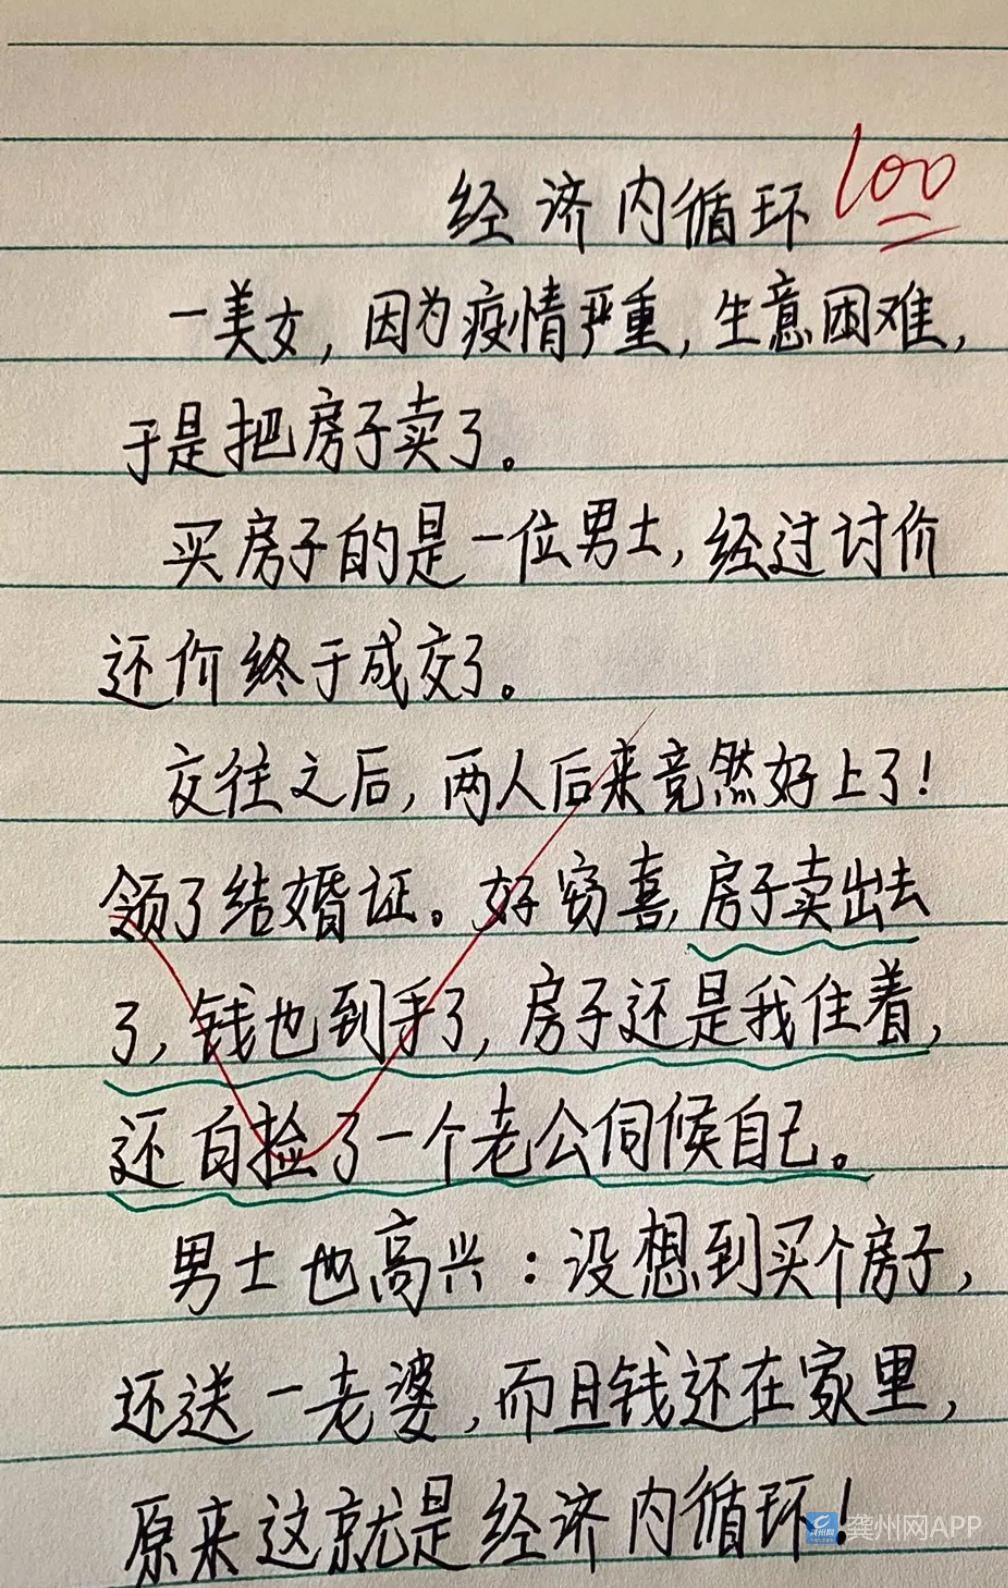 经济内循环 100
一美女，因为疫情严重，生意困难，
于是把房子卖了。
买房子的是一位男士，经过讨价
还价终于成交了。
交往之后，两人后来竟然好上了！
领了结婚证。好窃喜，房子卖出去
了，钱也到手了，房子还是我住着，
还白捡了一个老公伺候自己。
男士也高兴：没想到买个房子，
还送一老婆，而且钱还在家里，
原来这就是经济内循环！
龚州网APP